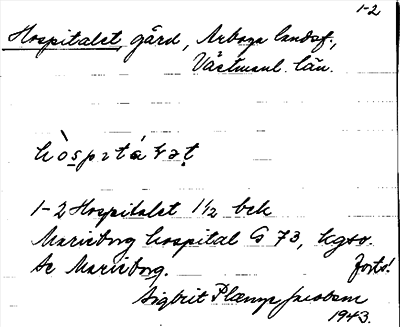 1-2
Hospitalet, gård, Arboga landsf.,
Västmanl. län.
1-2 Hospitalet 1/2 bck
Marieborg hospital G 73, kgso.
Se Marieborg. forts!
Sigbrit Plænge Jacobson
1943.